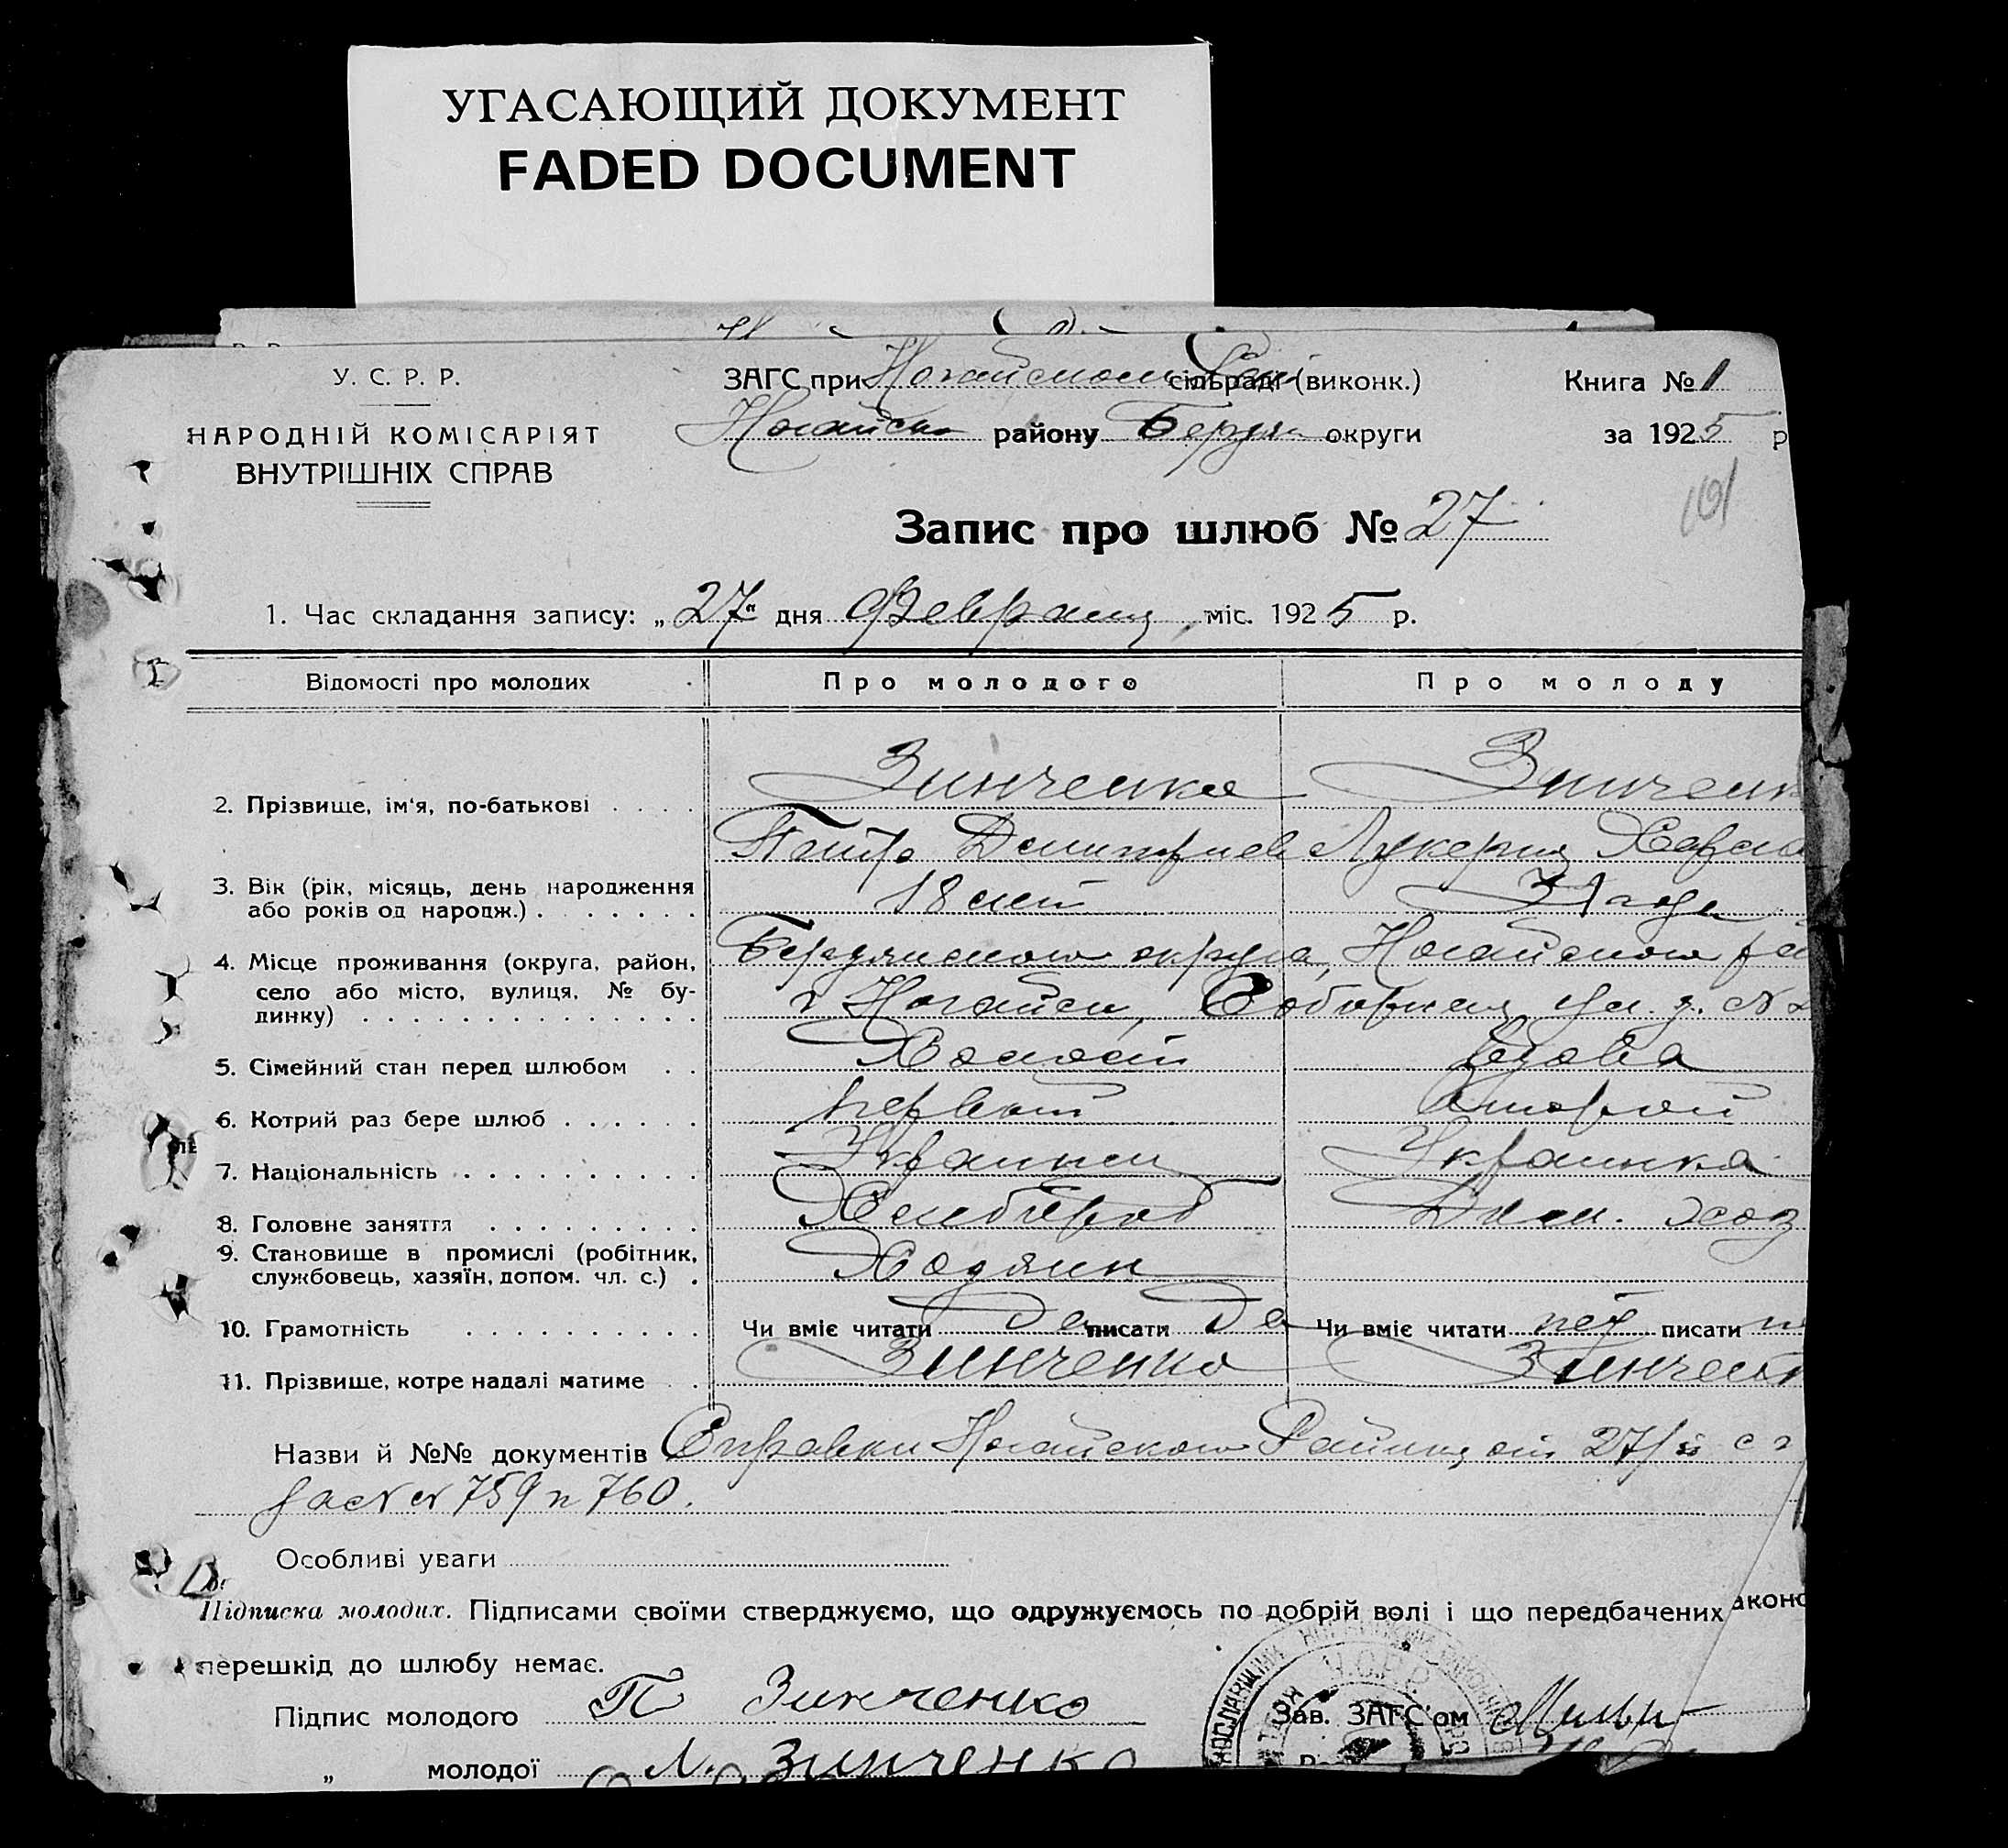 УГАСАЮЩИЙ ДОКУМЕНТ
FADED DOCUMENT
У. С. Р. Р.
НАРОДНІЙ КОМІСАРІЯТ
ВНУТРІШНІХ СПРАВ
ЗАГС при Ногайском сільраді (виконк.)
Ногайск района Бердян округи
Книга № 1
за 1925 р
101
Запис про шлюб № 27
1. Час складання запису: „27“ дня Февраля міс. 1925 р.
Відомості про молодих Про молодого Про молоду
2. Прізвище, ім'я, по-батькові . . . . Зинченко Зинченк
Петр Дмитриев Лукерия
3. Вік (рік, місяць, день народження 18 лет 31 года
або років од народж.) . . . . . . .
4. Місце проживання (округа, район, Бердянского округа, Ногайского рай
село або місто, вулиця, № бу- г Ногайск, Соборная ул. д. №
динку) . . . . . . . . . . . . . . .
5. Сімейний стан перед шлюбом . . Холост Вдова
6. Котрий раз бере шлюб . . . . . . первый второй
7. Національність . . . . . . . . . . Украинец Украинка
8. Головне заняття . . . . . . . . . Хлебороб Дом. хоз
9. Становище в промислі (робітник,
службовець, хазяїн, допом. чл. с.) . Хозяин
10. Грамотність . . . . . . . . . . Чи вміє читати Да писати Да Чи вміє читати нет писати
11. Прізвище, котре надалі матиме . Зинченко Зинченк
Назви й №№ документів Справки Ногайского от 27/II с г
за №№ 759 и 760.
Особливі уваги
Підписка молодих. Підписами своїми стверджуємо, що одружуємось по добрій волі і що передбачених законо
перешкід до шлюбу немає.
Підпис молодого П Зинченко
Зав. ЗАГС'ом
У.С.Р.Р.
„ молодої Л. Зинченко